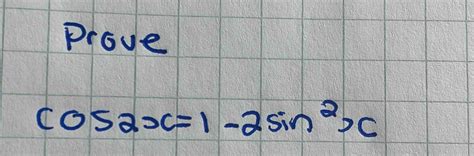 Prove
cos2x=1-2sin²x